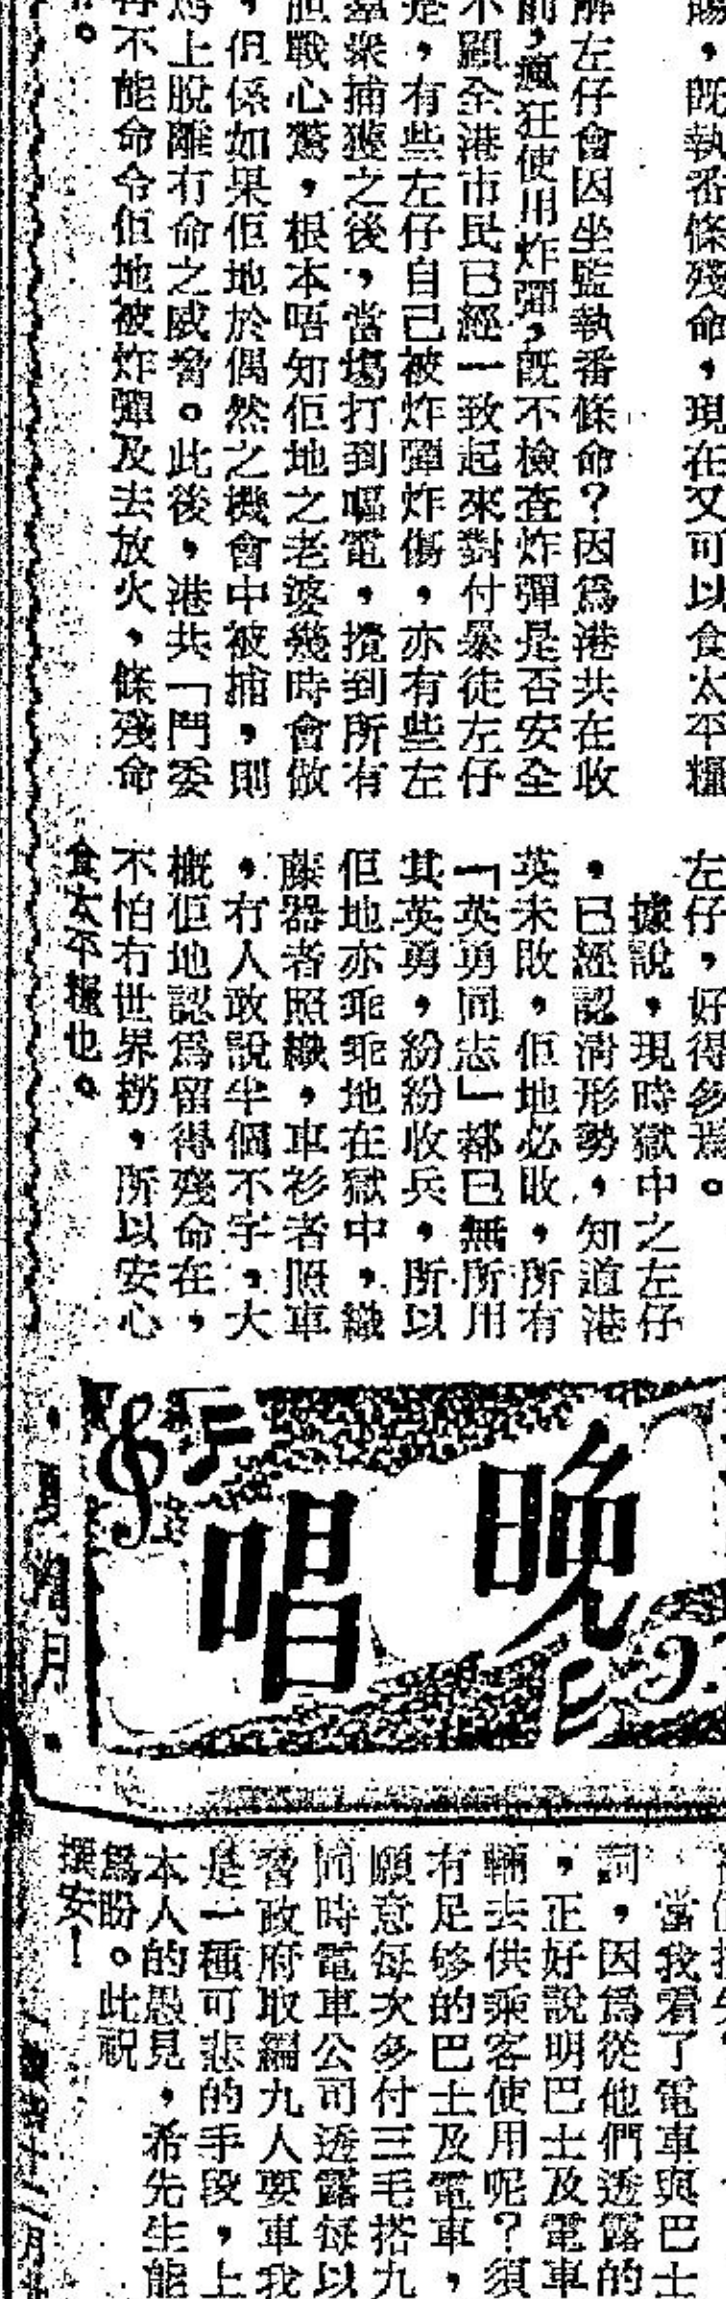 賜，既執番條殘命，現在又可以食太平糧
解左仔會因坐監執番條命？因爲港共在收
前，瘋狂使用炸彈，既不檢查炸彈是否安全
不顧全港市民已經一致起來對付暴徒左仔
是，有些左仔自己被炸彈炸傷，亦有些左
羣衆捕獲之後，當塲打到嘔電，攪到所有
胆戰心驚，根本唔知佢地之老婆幾時會做
，但係如果佢地於偶然之機會中被捕，則
馬上脫離冇命之威脅。此後，港共「鬥委
再不能命令佢地被炸彈及去放火，條殘命
。
左仔，好得多焉。
據說，現時獄中之左仔
，已經認淸形勢，知道港
英未敗，佢地必敗，所有
「英勇同志」都已無所用
其英勇，紛紛收兵，所以
佢地亦乖乖地在獄中，織
藤器者照織，車衫者照車
，冇人敢說半個不字，大
概佢地認爲留得殘命在，
不怕冇世界撈，所以安心
食太平糧也。
晚唱
當我看了電車與巴士
詞，因爲從他們透露的
，正好說明巴士及電車
輛去供乘客使用呢？須
有足够的巴士及電車，
願意每次多付三毛搭九
同時電車公司透露每以
脅政府取締九人要車我
是一種可悲的手段，上
本人的愚見，希先生能
爲盼。此祝
撰安！